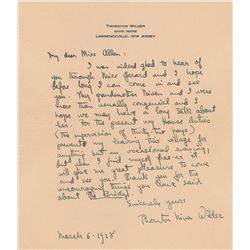 THORNTON WILDER
DAVIS HOUSE
LAWRENCEVILLE, NEW JERSEY
My dear Miss Allen:
I was glad to hear of
you through Miss Gerard and I hope
before long I can come in and see
you. My grandmother Niven and I were
more than usually congenial and I
hope we may have a long talk about
her. For the present my House duties
(the supervision of thirty-two boys)
prevent my leaving this village for
anything but an occasional evening;
but when I find myself free it
will give me great pleasure to come
and see you & thank you for the
encouraging things you have said
about The Bridge
Sincerely yours
Thornton Niven Wilder
March 6 - 1928